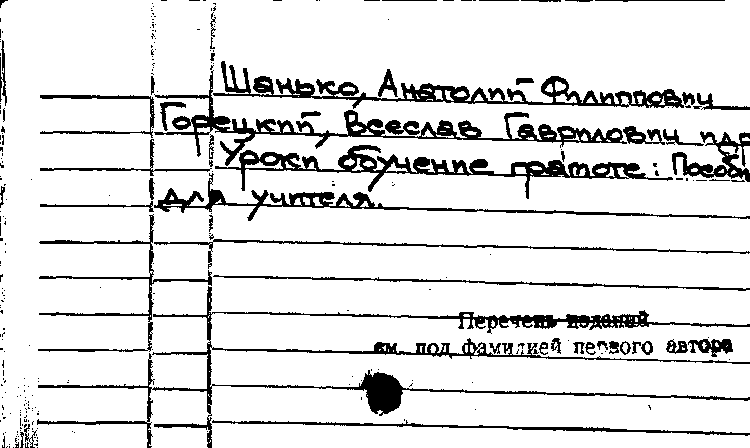 Шанько, Анатолий Филиппович
Горецкий, Всеслав Гаврилович и др
Уроки обучение грамоте: Пособи
для учителя.
Перечень изданий
см. под фамилией первого автора